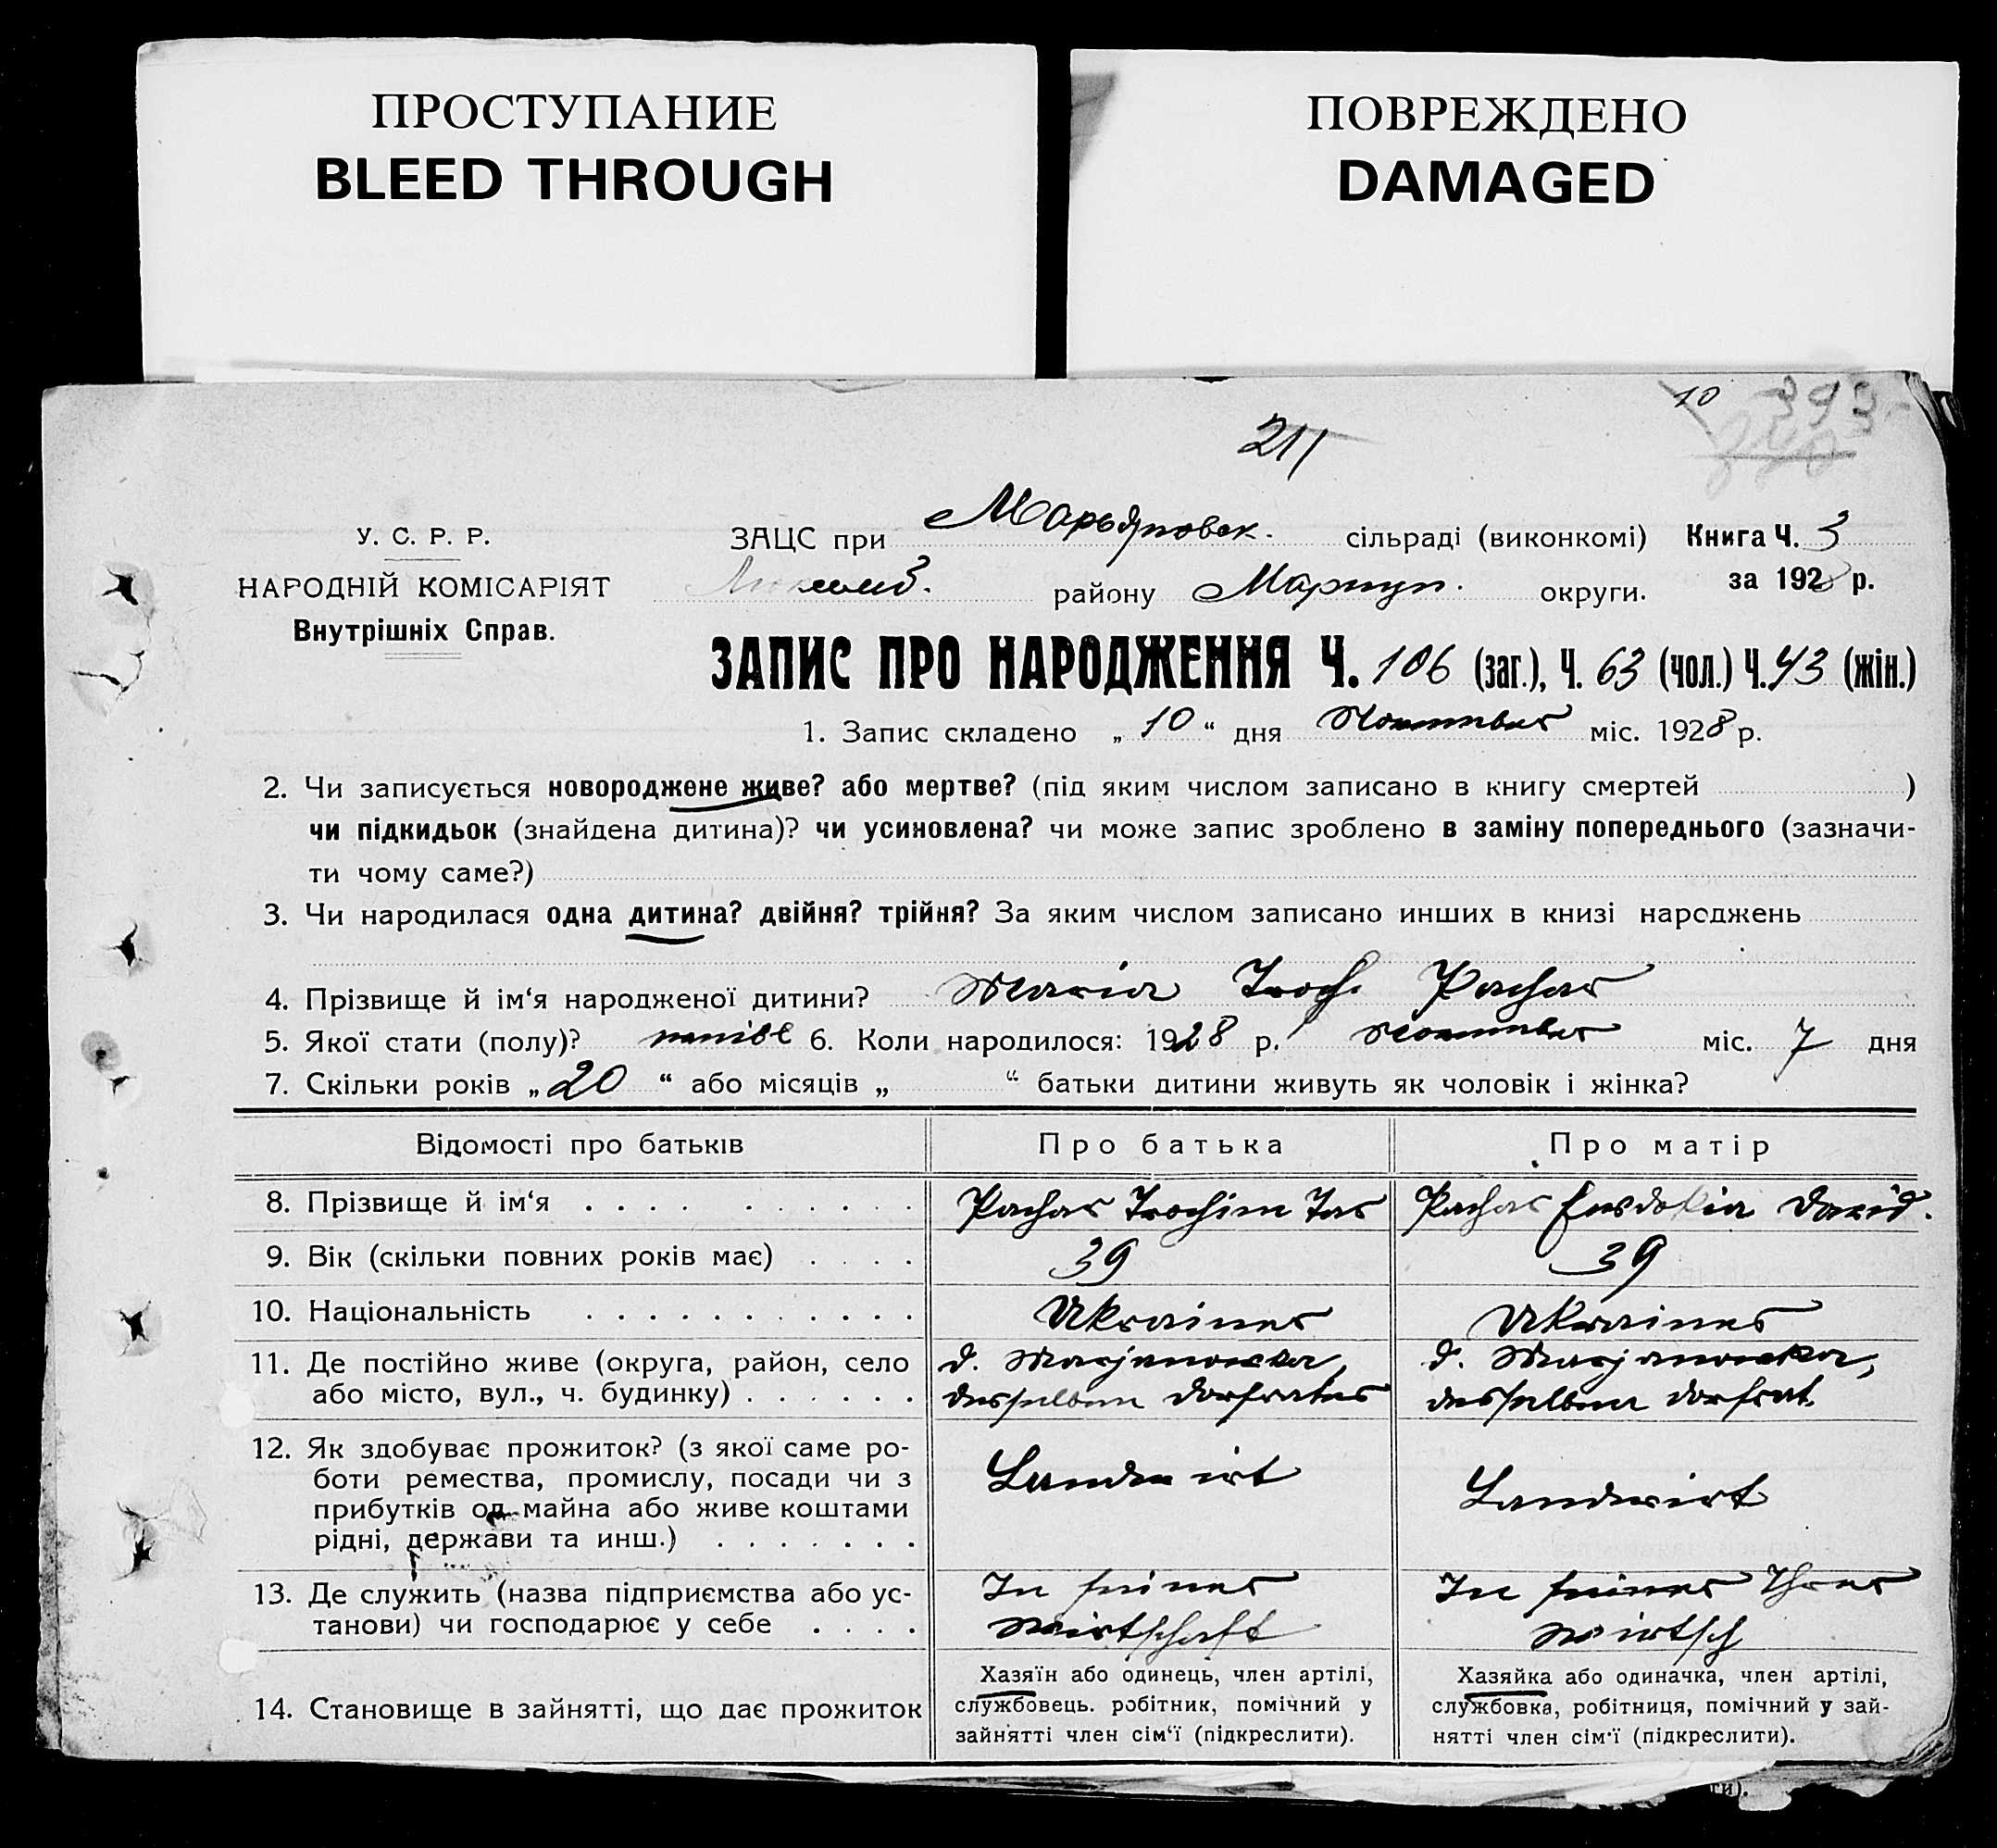 ПРОСТУПАНИЕ
BLEED THROUGH
ПОВРЕЖДЕНО
DAMAGED
10 393
211
У. С. Р. Р.
НАРОДНІЙ КОМІСАРІЯТ
Внутрішніх Справ.
ЗАЦС при Марьяновск. сільраді (виконкомі) Книга Ч. 3
району Мариуп. округи. за 1928 р.
ЗАПИС ПРО НАРОДЖЕННЯ Ч. 106 (заг.), Ч. 63 (чол.) Ч. 43 (жін.)
1. Запис складено „ 10 “ дня November міс. 1928 р.
2. Чи записується новороджене живе? або мертве? (під яким числом записано в книгу смертей )
чи підкидьок (знайдена дитина)? чи усиновлена? чи може запис зроблено в заміну попереднього (зазначи-
ти чому саме?)
3. Чи народилася одна дитина? двійня? трійня? За яким числом записано инших в книзі народжень
4. Прізвище й ім‘я народженої дитини? Maria Troch. Pachar
5. Якої стати (полу)? weibl 6. Коли народилося: 1928 р. November міс. 7 дня
7. Скільки років „ 20 “ або місяців „ “ батьки дитини живуть як чоловік і жінка?
Відомості про батьків
Про батька
Про матір
8. Прізвище й ім‘я
Pachar Trochim Tar
Pachar Ewdokia David.
9. Вік (скільки повних років має)
39
39
10. Національність
Ukrainer
Ukrainer
11. Де постійно живе (округа, район, село
або місто, вул., ч. будинку)
d. Marjanowka,
desselben Dorfrates
d. Marjanowka,
desselben Dorfrat.
12. Як здобуває прожиток? (з якої саме ро-
боти ремества, промислу, посади чи з
прибутків од майна або живе коштами
рідні, держави та инш.)
Landwirt
Landwirt
13. Де служить (назва підприємства або ус-
танови) чи господарює у себе
In seiner
Wirtschaft
In seiner Ihrer
Wirtsch
14. Становище в зайнятті, що дає прожиток
Хазяїн або одинець, член артілі,
службовець. робітник, помічний у
зайнятті член сім‘ї (підкреслити).
Хазяйка або одиначка, член артілі,
службовка, робітниця, помічний у зай-
нятті член сім‘ї (підкреслити).
ти).